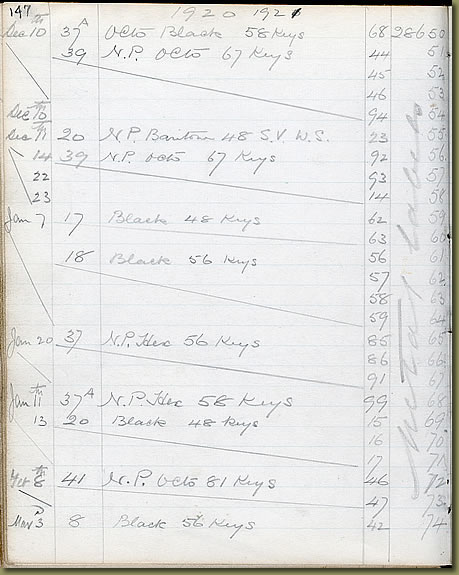 147 1920 1921
Dec 10th 37A Octo Black 58 Keys 68 28650
39 N.P. Octo 67 Keys 44 51
45 52
46 53
Dec 10th 94 54
Dec 11th 20 N.P. Bantone 48 S.V. W.S. 23 55
14 39 N.P. Octo 67 Keys 92 56
22 93 57
23 14 58
Jan 7 17 Black 48 Keys 62 59
63 60
18 Black 56 Keys 56 61
57 62
58 63
59 64
Jan 20 37 N.P. Hex 56 Keys 85 65
86 66
91 67
Jan 11th 37A N.P. Hex 58 Keys 99 68
13 20 Black 48 Keys 15 69
16 70
17 71
Feb 8th 41 N.P. Octo 81 Keys 46 72
47 73
Mar 3 8 Black 56 Keys 42 74
Metal Labels